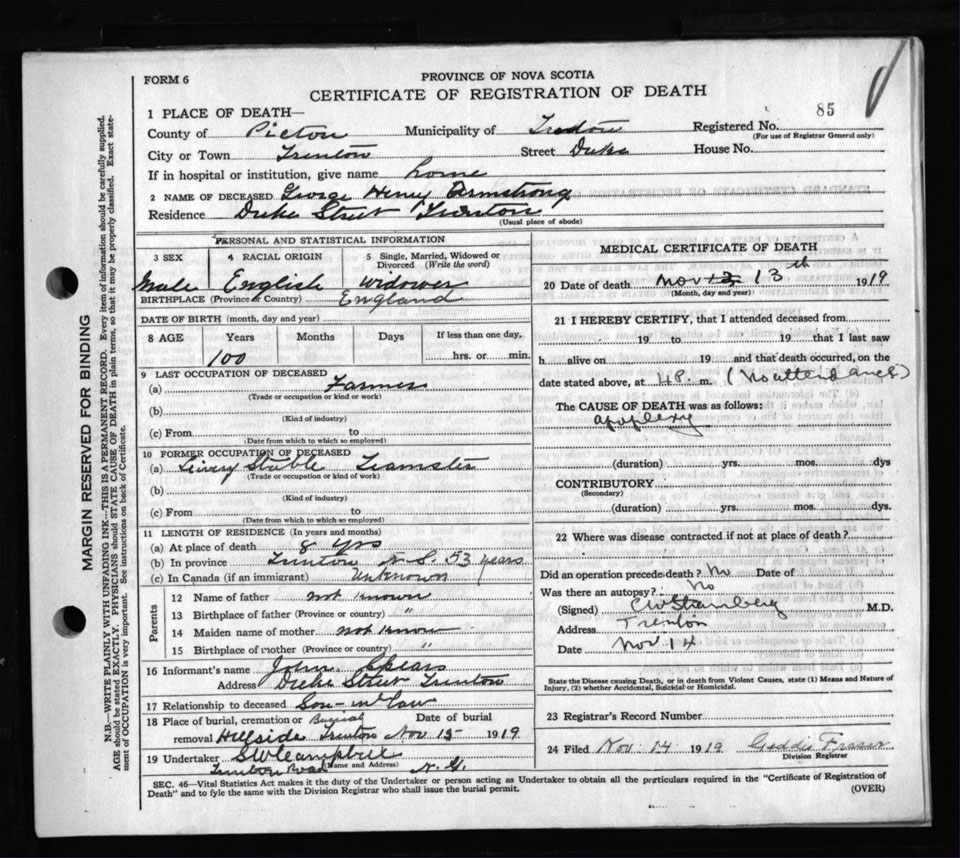 FORM 6
PROVINCE OF NOVA SCOTIA
CERTIFICATE OF REGISTRATION OF DEATH
85
1 PLACE OF DEATH—
County of Pictou Municipality of Trenton Registered No.
(For use of Registrar General only)
City or Town Trenton Street Duke House No.
If in hospital or institution, give name home
2 NAME OF DECEASED George Henry Armstrong
Residence Duke Street Trenton
(Usual place of abode)
PERSONAL AND STATISTICAL INFORMATION
3 SEX 4 RACIAL ORIGIN 5 Single, Married, Widowed or Divorced (Write the word)
Male English widower
BIRTHPLACE (Province or Country) England
DATE OF BIRTH (month, day and year)
8 AGE Years Months Days If less than one day,
100 hrs. or min.
9 LAST OCCUPATION OF DECEASED
(a) Farmer
(Trade or occupation or kind or work)
(b)
(Kind of industry)
(c) From to
(Date from which to which so employed)
10 FORMER OCCUPATION OF DECEASED
(a) Livery Stable Teamster
(Trade or occupation or kind of work)
(b)
(Kind of industry)
(c) From to
(Date from which to which so employed)
11 LENGTH OF RESIDENCE (In years and months)
(a) At place of death 8 yrs
(b) In province Trenton N.S. 53 years
(c) In Canada (if an immigrant) Unknown
Parents
12 Name of father not known
13 Birthplace of father (Province or country) "
14 Maiden name of mother not know
15 Birthplace of mother (Province or country) "
16 Informant's name John Spears
Address Duke Street Trenton
17 Relationship to deceased Son-in-law
18 Place of burial, cremation or Burial Date of burial
removal Hillside Trenton Nov 15 1919
19 Undertaker S W Campbell
(Name and Address)
Trenton Road N. G.
MEDICAL CERTIFICATE OF DEATH
20 Date of death Nov 13 13th 1919
(Month, day and year)
21 I HEREBY CERTIFY, that I attended deceased from
19 to 19 that I last saw
h alive on 19 and that death occurred, on the
date stated above, at 4 P. m. (No attendance)
The CAUSE OF DEATH was as follows:
apoplexy
(duration) yrs. mos. dys
CONTRIBUTORY
(Secondary)
(duration) yrs. mos. dys.
22 Where was disease contracted if not at place of death?
Did an operation precede death? No Date of
Was there an autopsy? No
(Signed) M.D.
Address Trenton
Date Nov 14
State the Disease causing Death, or in death from Violent Causes, state (1) Means and Nature of
Injury, (2) whether Accidental, Suicidal or Homicidal.
23 Registrar's Record Number
24 Filed Nov 14 1919 Geddie Fraser
Division Registrar
SEC. 46—Vital Statistics Act makes it the duty of the Undertaker or person acting as Undertaker to obtain all the particulars required in the "Certificate of Registration of
Death" and to fyle the same with the Division Registrar who shall issue the burial permit.
(OVER)
MARGIN RESERVED FOR BINDING
N.B.—WRITE PLAINLY WITH UNFADING INK—THIS IS A PERMANENT RECORD. Every item of information should be carefully supplied.
AGE should be stated EXACTLY. PHYSICIANS should STATE CAUSE OF DEATH in plain terms, so that it may be properly classified. Exact statement of OCCUPATION is very important. See instructions on back of Certificate.